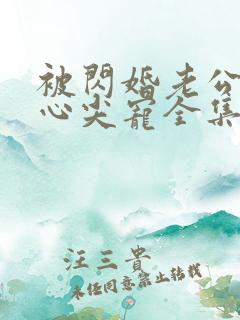 被閃婚老公
心尖寵全集
汪三貴
未经同意禁止转载